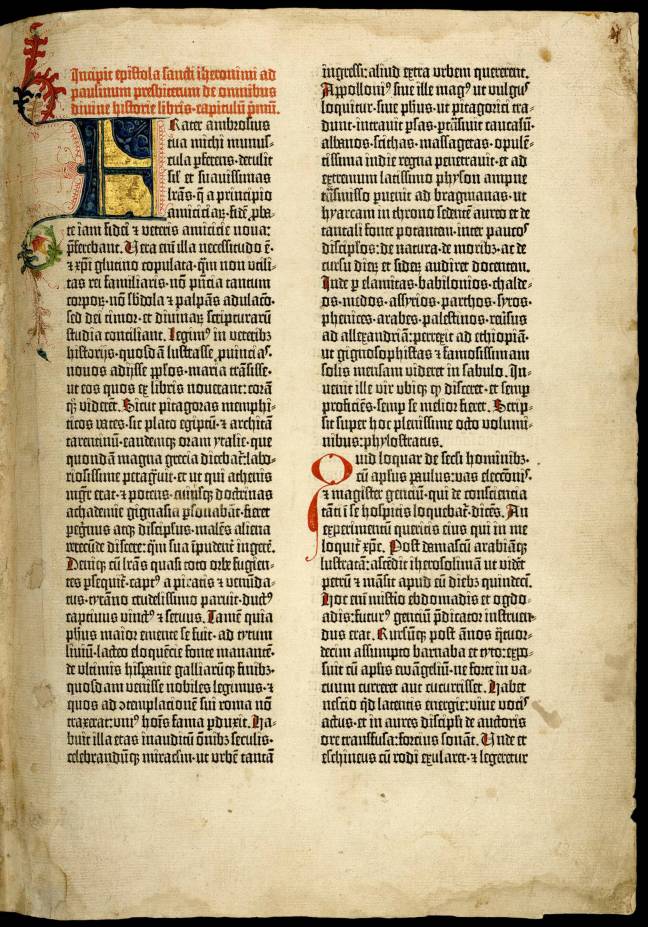 Incipit epistola sancti iheronimi ad
paulinum presbiterum de omnibus
divine historie libris·capitulū p̄mū.
Frater ambrosius
tua michi munus-
cula ꝑferens·detulit
sil̄ et suavissimas
lrās·q̄ a principio
amiciciaꝝ·fidē ꝓba-
te iam fidei ⁊ veteris amicicie nova:
p̄ferebant. Vera eni̅ illa necessitudo ē·
⁊ xp̄i glutino copulata·qm̄ non utili-
tas rei familiaris·nō pn̄tia tantum
corporꝝ·nō sb̄dola ⁊ palpās adulacō·
sed dei timor·et divinaꝝ scripturarū
studia conciliant. Legimꝰ in veteribꝫ
historijs·quosdā lustrasse ꝓvīcias·
novos adijsse ppl̄os·maria trāsisse·
ut eos quos ex libris noverant: corā
qꝫ viderēt. Sicut pitagoras memphi-
ticos vates·sic plato egiptū·⁊ architā
tarentinū·eandemqꝫ oram ytalie·que
quondā magna grecia dicebat̄: labo-
riosissime peragravit·et ut qui athenis
mgr̄ erat·⁊ potens·cuiusqꝫ doctrinas
achademie gignasia ꝑsonabāt·fieret
peg̓nus atqꝫ discipl̓us·malēs aliena
verecūde discere: qm̄ sua īpudent̄ ingerē.
Deniqꝫ cū lrās quasi toto orbe fugien-
tes ꝑsequit̄·captꝰ a piratis ⁊ venūda-
tus·tyrāno crudelissimo paruit·ductꝰ
captivus vinctꝰ ⁊ servus. Tamē quia
ph̄us maior emente se fuit·ad tytum
liviū·lacteo eloquēcie fonte manantē·
de ultimis hispanie galliarūqꝫ finibꝫ·
quosdam venisse nobiles legimus·⁊
quos ad ꝯtemplacionē sui roma nō
traxerat: uniꝰ hoīs fama ꝑduxit. Ha-
buit illa etas inauditū oīnibꝫ seculis·
celebrandūqꝫ miraclm̄·ut urbē tantā
ingressi: aliud extra urbem quererent.
Appolloniꝰ sive ille magꝰ ut vulgus
loquitur·sive ph̄us·ut pitagorici tra-
dunt·intravit ꝑsas·ꝑtrāsivit caucasū·
albanos·scithas·massagetas·opulē-
tissima indie regna penetravit·et ad
extremum latissimo physon ampne
trāsmisso ꝑvenit ad bragmanas·ut
hyarcam in throno sedentē aureo et de
tantali fonte potantem·inter paucos
discipl̓os: de natura·de moribꝫ·ac de
cursu dieꝝ et sideꝝ audiret docentem.
Inde ꝑ elamitas·babilonios·chalde-
os·medos·assyrios·parthos·syros·
phenices·arabes·palestinos·reversus
ad allexandriā: perrexit ad ethiopiā·
ut gignosophistas ⁊ famosissimam
solis mensam videret in sabulo. In-
venit ille vir ubiqꝫ qd̓ disceret·et semꝑ
proficiēs·semꝑ se melior fieret. Scrip-
sit super hoc plenissime octo volumi-
nibus: phylostratus.
Quid loquar de secli hominibꝫ·
cū apl̓us paulus: vas electiōis·
⁊ magister genciū·qui de consciencia
tāti ī se hospitis loquebat̄·dicēs. An
experimentū queritis eius qui in me
loquit̄ xp̄c. Post damascū arabiāqꝫ
lustratā: ascēdit iherosolimā ut videt̄
petrū ⁊ māsit apud eū diebꝫ quindeci̅.
Hoc eni̅ misterio ebdomadis et ogdo-
adis: futurꝰ genciū p̄dicator instruen-
dus erat. Rursūqꝫ post ānos qt̓tuor-
decim assumpto barnaba et tyto: expo-
suit cū apl̓is ewāgeliū·ne forte in va-
cuum curreret aut cucurrisset. Habet
nescio qd̓ latentis energie: vive vocis
actus·et in aures discipl̓i de auctoris
ore transfusa: forcius sonāt. Unde et
eschineus cū rodi exularet·⁊ legeretur